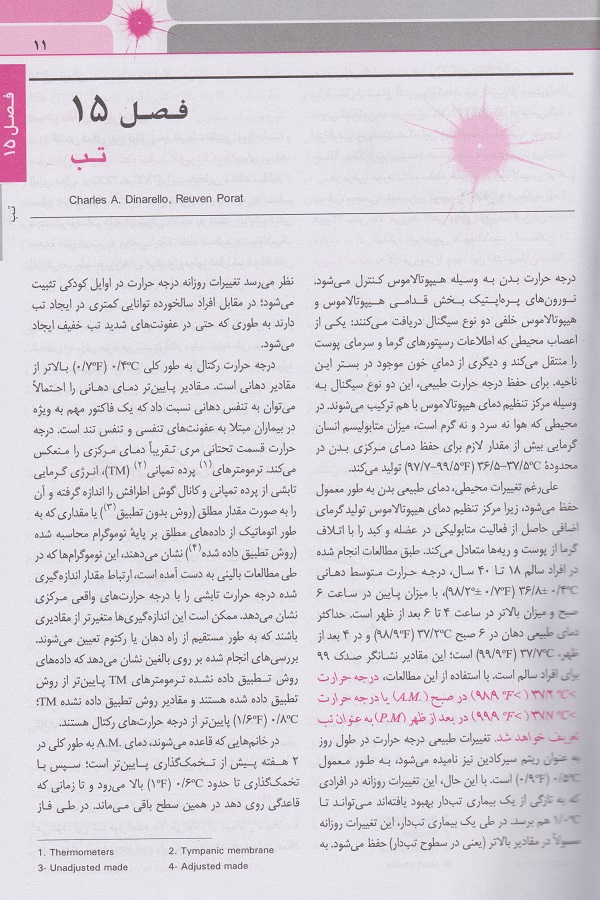 ۱۱
فصل ۱۵
تب
فصل ۱۵
تب
Charles A. Dinarello, Reuven Porat
درجه حرارت بدن به وسیله هیپوتالاموس کنترل می‌شود.
نورون‌های پره‌اپتیک بخش قدامی هیپوتالاموس و
هیپوتالاموس خلفی دو نوع سیگنال دریافت می‌کنند: یکی از
اعصاب محیطی که اطلاعات رسپتورهای گرما و سرمای پوست
را منتقل می‌کند و دیگری از دمای خون موجود در بستر این
ناحیه. برای حفظ درجه حرارت طبیعی، این دو نوع سیگنال به
وسیله مرکز تنظیم دمای هیپوتالاموس با هم ترکیب می‌شوند. در
محیطی که هوا نه سرد و نه گرم است، میزان متابولیسم انسان
گرمایی بیش از مقدار لازم برای حفظ دمای مرکزی بدن در
محدودهٔ ۳۶/۵-۳۷/۵°C (۹۷/۷-۹۹/۵°F) تولید می‌کند.
علی‌رغم تغییرات محیطی، دمای طبیعی بدن به طور معمول
حفظ می‌شود، زیرا مرکز تنظیم دمای هیپوتالاموس تولید گرمای
اضافی حاصل از فعالیت متابولیکی در عضله و کبد را با اتلاف
گرما از پوست و ریه‌ها متعادل می‌کند. طبق مطالعات انجام شده
در افراد سالم ۱۸ تا ۴۰ سال، درجه حرارت متوسط دهانی
۳۶/۸±۰/۴°C (۹۸/۲°±۰/۷°F)، با میزان پایین در ساعت ۶
صبح و میزان بالاتر در ساعت ۴ تا ۶ بعد از ظهر است. حداکثر
دمای طبیعی دهان در ۶ صبح ۳۷/۲°C (۹۸/۹°F) و در ۴ بعد از
ظهر، ۳۷/۷°C (۹۹/۹°F) است؛ این مقادیر نشانگر صدک ۹۹
برای افراد سالم است. با استفاده از این مطالعات، درجه حرارت
>۳۷/۲°C (>۹۸/۹°F) در صبح (A.M.) یا درجه حرارت
>۳۷/۷°C (>۹۹/۹°F) در بعد از ظهر (P.M) به عنوان تب
تعریف خواهد شد. تغییرات طبیعی درجه حرارت در طول روز
به عنوان ریتم سیرکادین نیز نامیده می‌شود، به طور معمول
۰/۵°C (۰/۹°F) است. با این حال، این تغییرات روزانه در افرادی
که به تازگی از یک بیماری تب‌دار بهبود یافته‌اند می‌تواند تا
۱/۰°C هم برسد. در طی یک بیماری تب‌دار، این تغییرات روزانه
معمولاً در مقادیر بالاتر (یعنی در سطوح تب‌دار) حفظ می‌شود. به
نظر می‌رسد تغییرات روزانه درجه حرارت در اوایل کودکی تثبیت
می‌شود؛ در مقابل افراد سالخورده توانایی کمتری در ایجاد تب
دارند به طوری که حتی در عفونت‌های شدید تب خفیف ایجاد
می‌شود.
درجه حرارت رکتال به طور کلی ۰/۴°C (۰/۷°F) بالاتر از
مقادیر دهانی است. مقادیر پایین‌تر دمای دهانی را احتمالاً
می‌توان به تنفس دهانی نسبت داد که یک فاکتور مهم به ویژه
در بیماران مبتلا به عفونت‌های تنفسی و تنفس تند است. درجه
حرارت قسمت تحتانی مری تقریباً دمای مرکزی را منعکس
می‌کند. ترمومترهای(۱) پرده تمپانی(۲) (TM)، انرژی گرمایی
تابشی از پرده تمپانی و کانال گوش اطرافش را اندازه گرفته و آن
را به صورت مقدار مطلق (روش بدون تطبیق(۳)) یا مقداری که به
طور اتوماتیک از داده‌های مطلق بر پایهٔ نوموگرام محاسبه شده
(روش تطبیق داده شده(۴)) نشان می‌دهند، این نوموگرام‌ها که در
طی مطالعات بالینی به دست آمده است، ارتباط مقدار اندازه‌گیری
شده درجه حرارت تابشی را با درجه حرارت‌های واقعی مرکزی
نشان می‌دهد. ممکن است این اندازه‌گیری‌ها متغیرتر از مقادیری
باشند که به طور مستقیم از راه دهان یا رکتوم تعیین می‌شوند.
بررسی‌های انجام شده بر روی بالغین نشان می‌دهد که داده‌های
روش تـطبیق داده نشده ترمومترهای TM پایین‌تر از روش
تطبیق داده شده هستند و مقادیر روش تطبیق داده نشده TM؛
۰/۸°C (۱/۶°F) پایین‌تر از درجه حرارت‌های رکتال هستند.
در خانم‌هایی که قاعده می‌شوند، دمای A.M. به طور کلی در
۲ هفته پیش از تخمک‌گذاری پایین‌تر است؛ سپس با
تخمک‌گذاری تا حدود ۰/۶°C (۱°F) بالا می‌رود و تا زمانی که
قاعدگی روی دهد در همین سطح باقی می‌ماند. در طی فاز
1. Thermometers
2. Tympanic membrane
3- Unadjusted made
4- Adjusted made